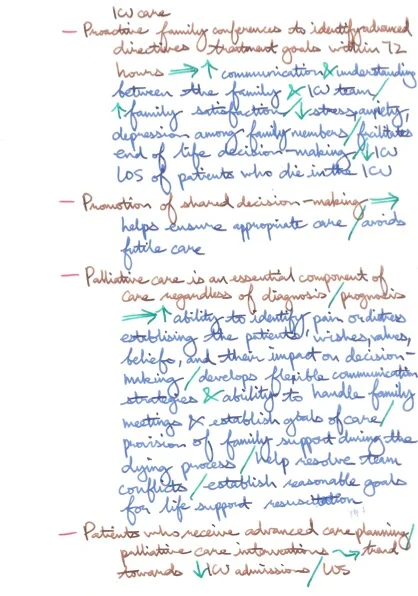 ICU care
— Proactive family conferences to identify advanced
directives / treatment goals within 72
hours ⟹ ↑ communication & understanding
between the family & ICU team /
↑ family satisfaction / ↓ stress, anxiety,
depression among family members / facilitates
end of life decision-making / ↓ ICU
LOS of patients who die in the ICU
— Promotion of shared decision-making ⟹
helps ensure appropriate care / avoids
futile care
— Palliative care is an essential component of
care regardless of diagnosis / prognosis
⟹ ↑ ability to identify pain or distress
establising the patients' wishes, values,
beliefs, and their impact on decision-
making / develops flexible communication
strategies & ability to handle family
meetings & establish goals of care /
provision of family support during the
dying process / help resolve team
conflicts / establish reasonable goals
for life support resuscitation
— Patients who receive advanced care planning /
palliative care interventions ⇝ trend
towards ↓ ICU admissions / LOS